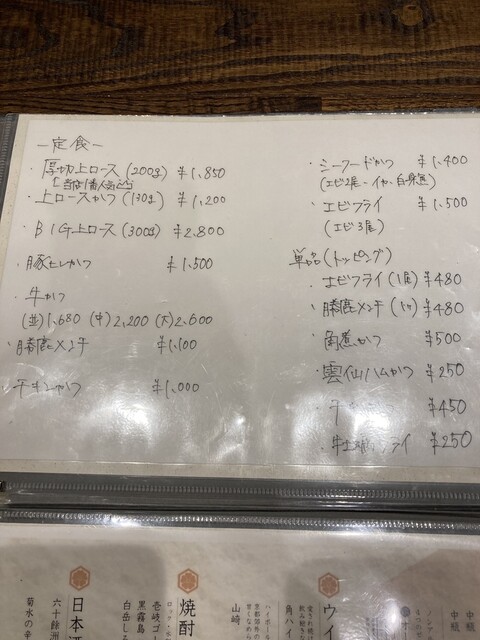 －定食－
・厚切上ロース(200g) ¥1,850
・上ロースかつ(130g) ¥1,200
・BIG上ロース(300g) ¥2,800
・豚ヒレかつ ¥1,500
・牛かつ
(並)1,680 (中)2,200 (大)2,600
・勝鹿メンチ ¥1,100
・チキンかつ ¥1,000
・シーフードかつ ¥1,400
(エビ2尾・イカ・白身魚)
・エビフライ ¥1,500
(エビ3尾)
単品(トッピング)
・エビフライ(1尾) ¥480
・勝鹿メンチ(1ケ) ¥480
・角煮かつ ¥500
・雲仙ハムかつ ¥250
¥450
フライ ¥250
中瓶
中瓶
ウイ
角ハイ
ハイボール
京都郊外の
山崎
焼酎
ロック・水
壱岐ゴ
黒霧島
白岳し
日本酒
六十餘洲
菊水の辛